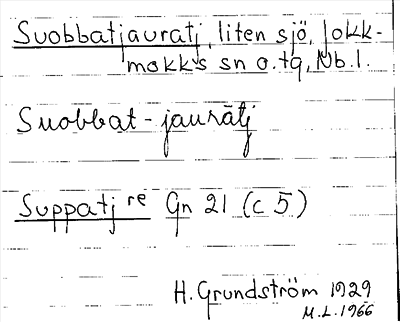 Suobbatjauratj, liten sjö, Jokk-
mokks sn o. tg, Nb. l.
Suobbat-jaurātj
Suppatj re Gn 21 (c 5)
H. Grundström 1929
M.L. 1966